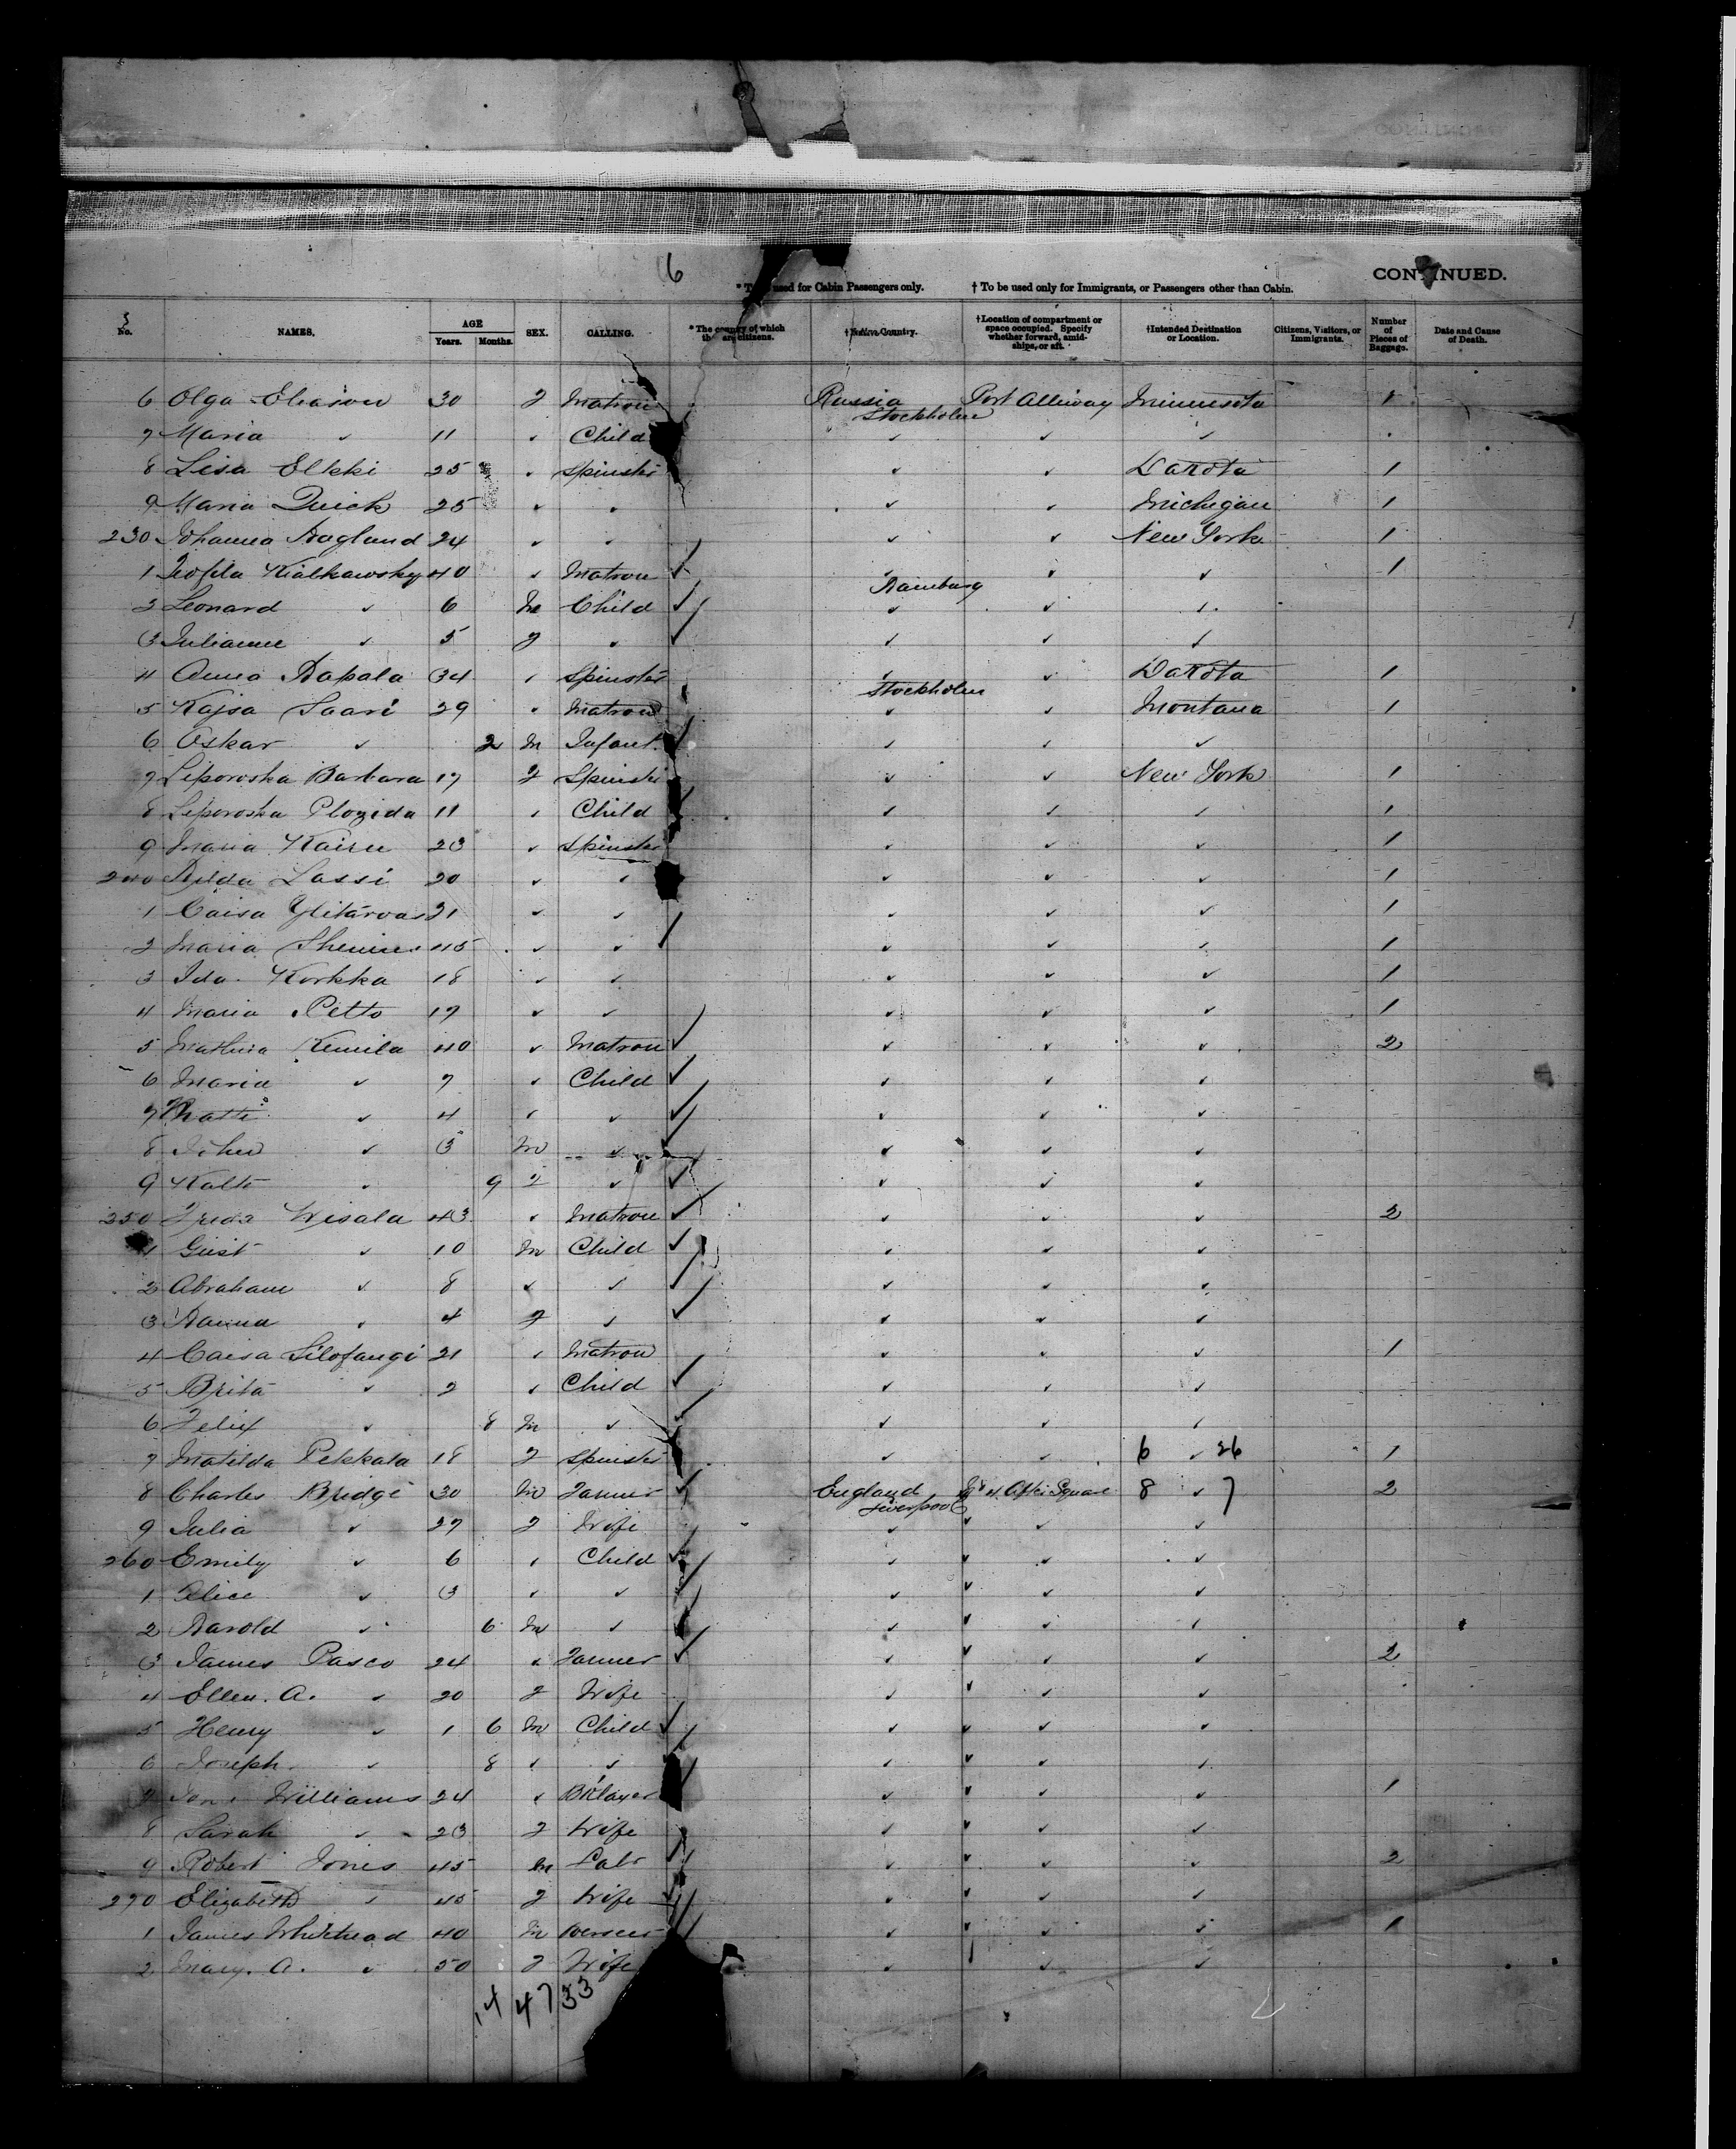 6
CONTINUED.
* To be used for Cabin Passengers only. † To be used only for Immigrants, or Passengers other than Cabin.
No. NAMES. AGE Years. Months. SEX. CALLING. * The country of which they are citizens. † Native Country. † Location of compartment or space occupied. Specify whether forward, amidships, or aft. † Intended Destination or Location. Citizens, Visitors, or Immigrants. Number of Pieces of Baggage. Date and Cause of Death.
6 Olga Eliason 30 F Matron Russia Stockholm Port Alleway Minnesota 1
7 Maria ✓ 11 ✓ Child ✓ ✓ ✓
8 Lisa Elkki 25 ✓ Spinster ✓ ✓ Dakota 1
9 Maria Quick 25 ✓ ✓ ✓ ✓ Michigan 1
230 Johanna Hagland 24 ✓ ✓ ✓ ✓ New York 1
1 Teofila Kialkawsky 40 ✓ Matron ✓ ✓ ✓ ✓ 1
Hamburg
2 Leonard ✓ 6 M Child ✓ ✓ ✓ ✓
3 Julianne ✓ 5 F ✓ ✓ ✓ ✓ ✓
4 Anna Hapala 34 ✓ Spinster ✓ ✓ Dakota 1
Stockholm
5 Kajsa Saari 29 ✓ Matron ✓ ✓ Montana 1
6 Oskar ✓ 2 M Infant ✓ ✓ ✓ ✓
7 Leporoska Barbara 17 F Spinster ✓ ✓ New York 1
8 Leporoska Plozida 11 ✓ Child ✓ ✓ ✓ 1
9 Maria Kairu 23 ✓ Spinster ✓ ✓ ✓ 1
240 Hilda Lassi 20 ✓ ✓ ✓ ✓ ✓ 1
1 Caisa 21 ✓ ✓ ✓ ✓ ✓ 1
2 Maria 45 ✓ ✓ ✓ ✓ ✓ 1
3 Ida Korkka 18 ✓ ✓ ✓ ✓ ✓ 1
4 Maria Petto 17 ✓ ✓ ✓ ✓ ✓ 1
5 Kemila 40 ✓ Matron ✓ ✓ ✓ ✓ 2
6 Maria ✓ 7 ✓ Child ✓ ✓ ✓ ✓
7 ✓ 4 ✓ ✓ ✓ ✓ ✓ ✓
8 John ✓ 3 M ✓ ✓ ✓ ✓
9 ✓ 9 F ✓ ✓ ✓ ✓ ✓
250 Wisala 43 ✓ Matron ✓ ✓ ✓ ✓ 2
1 Gust ✓ 10 M Child ✓ ✓ ✓ ✓
2 Abraham ✓ 8 ✓ ✓ ✓ ✓ ✓ ✓
3 Hanna ✓ 4 F ✓ ✓ ✓ ✓ ✓
4 Caisa Silofangi 21 ✓ Matron ✓ ✓ ✓ 1
5 Brita ✓ 2 ✓ Child ✓ ✓ ✓ ✓
6 Felix ✓ 8 M ✓ ✓ ✓ ✓ ✓
7 Matilda Pekkala 18 F Spinster ✓ ✓ 6 ✓ 26 1
8 Charles Bridge 30 M Farmer ✓ England Liverpool After Square 8 ✓ 7 2
9 Julia ✓ 27 F Wife ✓ ✓ ✓ ✓
260 Emily ✓ 6 ✓ Child ✓ ✓ ✓ ✓ ✓
1 Alice ✓ 3 ✓ ✓ ✓ ✓ ✓ ✓
2 Harold ✓ 6 M ✓ ✓ ✓ ✓ ✓ ✓
3 James Pasco 24 ✓ Farmer ✓ ✓ ✓ ✓ ✓ 2
4 Ellen. A. ✓ 20 F Wife ✓ ✓ ✓ ✓
5 Henry ✓ 1 6 M Child ✓ ✓ ✓ ✓ ✓
6 Joseph ✓ 8 ✓ ✓ ✓ ✓ ✓ ✓
7 Williams 24 ✓ Bklayer ✓ ✓ ✓ ✓ 1
8 Sarah ✓ 23 F Wife ✓ ✓ ✓ ✓
9 Robert Jones 45 M Labr ✓ ✓ ✓ ✓ 2
270 Elizabeth ✓ 45 F Wife ✓ ✓ ✓ ✓
1 James Whitehead 40 M Overseer ✓ ✓ ✓ ✓ 1
2 Mary. A. ✓ 50 F Wife ✓ ✓ ✓
14 4733